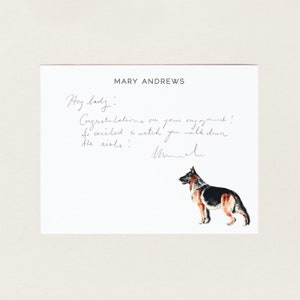 MARY ANDREWS
Hey lady!
Congratulations on your engagement!
So excited to watch you walk down
the aisle!